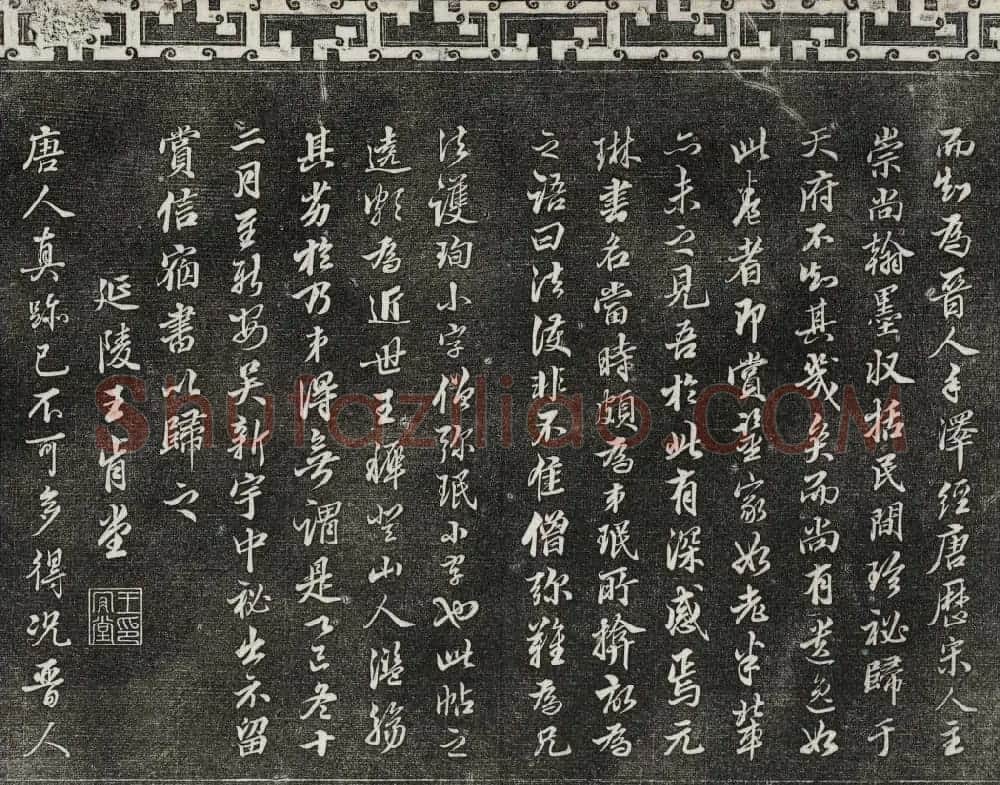 而知為晉人手澤經唐歷宋人主
崇尚翰墨收括民間珍秘歸于
天府不知其幾矣而尚有遺逸如
此卷者即賞鑒家如老米輩
亦未之見吾於此有深感焉元
琳書名當時頗為弟珉所揜故為
之語曰法護非不佳僧弥難為兄
法護珣小字僧弥珉小字也此帖之
遶頰為近世王穉登山人濫觴
其劣於乃弟得無謂是乙巳冬十
二月至新安吴新宇中祕出示留
賞信宿書以歸之
延陵王肯堂
王肯堂印
唐人真跡已不可多得況晉人
Shufaziliao.COM